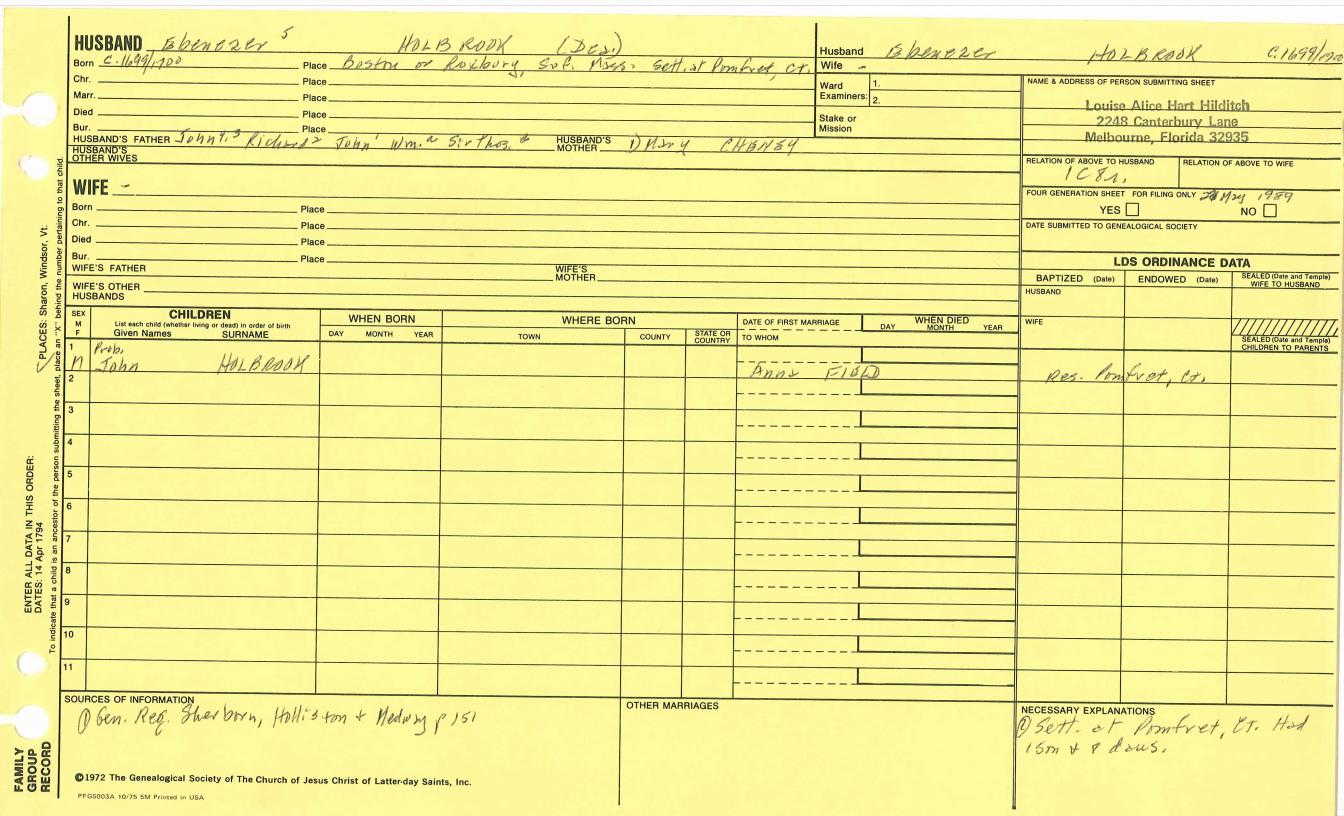 HUSBAND Ebenezer 5 HOLBROOK (Des.)
Born c.1699/1700 Place Boston or Roxbury, Suf. Mass. Sett. at Pomfret, Ct.
Chr. Place
Marr. Place
Died Place
Bur. Place
HUSBAND'S FATHER John 3 Richard 2 John 1 Wm. Sir Thos. HUSBAND'S MOTHER 1) Mary CHENEY
HUSBAND'S OTHER WIVES
Husband Ebenezer HOLBROOK c.1699/1700
Wife -
Ward Examiners: 1.
2.
Stake or Mission
NAME & ADDRESS OF PERSON SUBMITTING SHEET
Louise Alice Hart Hilditch
2248 Canterbury Lane
Melbourne, Florida 32935
RELATION OF ABOVE TO HUSBAND RELATION OF ABOVE TO WIFE
1C8r.
FOUR GENERATION SHEET FOR FILING ONLY May 1989
YES NO
DATE SUBMITTED TO GENEALOGICAL SOCIETY
WIFE -
Born Place
Chr. Place
Died Place
Bur. Place
WIFE'S FATHER WIFE'S MOTHER
WIFE'S OTHER HUSBANDS
LDS ORDINANCE DATA
BAPTIZED (Date) ENDOWED (Date) SEALED (Date and Temple) WIFE TO HUSBAND
HUSBAND
WIFE
SEALED (Date and Temple) CHILDREN TO PARENTS
SEX M F
CHILDREN
List each child (whether living or dead) in order of birth
Given Names SURNAME
WHEN BORN
DAY MONTH YEAR
WHERE BORN
TOWN COUNTY STATE OR COUNTRY
DATE OF FIRST MARRIAGE
TO WHOM
WHEN DIED
DAY MONTH YEAR
1 Prob.
M John HOLBROOK Anna FIELD Res. Pomfret, Ct.
2
3
4
5
6
7
8
9
10
11
SOURCES OF INFORMATION
① Gen. Reg. Sherborn, Holliston & Medway p 151
OTHER MARRIAGES
NECESSARY EXPLANATIONS
① Sett. at Pomfret, Ct. Had
1 son & 8 daus.
©1972 The Genealogical Society of The Church of Jesus Christ of Latter-day Saints, Inc.
PFGS003A 10/75 5M Printed in USA
FAMILY GROUP RECORD
ENTER ALL DATA IN THIS ORDER:
DATES: 14 Apr 1794
PLACES: Sharon, Windsor, Vt.
To indicate that a child is an ancestor of the person submitting the sheet, place an "X" behind the number pertaining to that child.